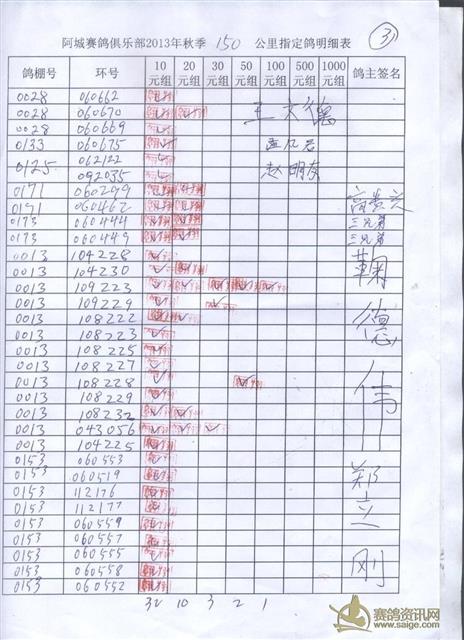 阿城赛鸽俱乐部2013年秋季 150 公里指定鸽明细表 3
鸽棚号 环号 10元组 20元组 30元组 50元组 100元组 500元组 1000元组 鸽主签名
0028 060662
0028 060670 王文德
0028 060669
0133 060675
0125 062122 赵明友
092035
0171 060299
0171 060462
0173 060444 三兄弟
0173 060449 三兄弟
0013 104228 鞠
0013 104230
0013 109223
0013 109229
0013 108222 德
0013 108223
0013 108225
0013 108227
0013 108228 伟
0013 108229
0013 108232
0013 043056
0013 104225
0153 060553
0153 060519 郑
0153 112176
0153 112177 立
0153 060559
0153 060557
0153 060555
0153 060558 刚
0153 060552
32 10 3 2 1
赛鸽资讯网
www.saige.com